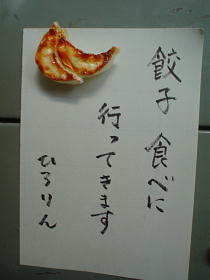 餃子 食べに
行ってきます
ひろりん